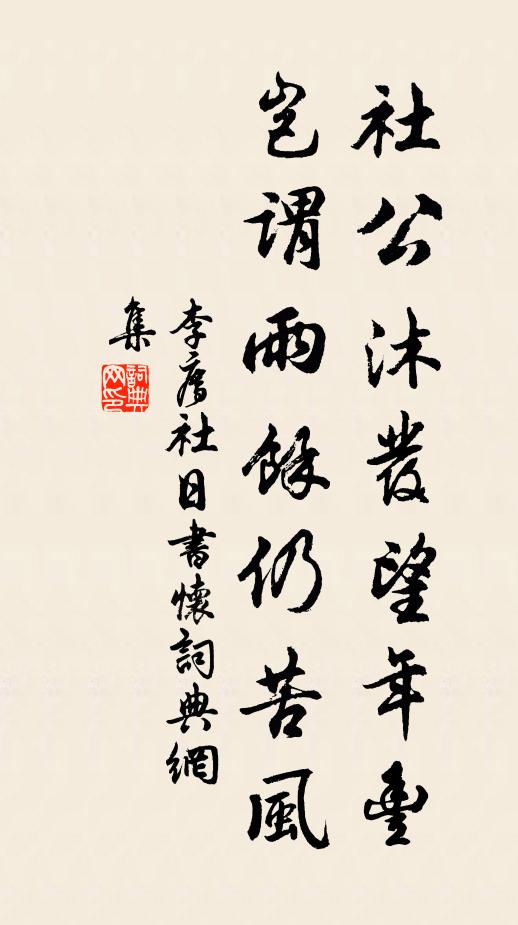 社公沐發望年豐
豈謂雨餘仍苦風
李廌社日書懷詞典網
集
詞典
网印